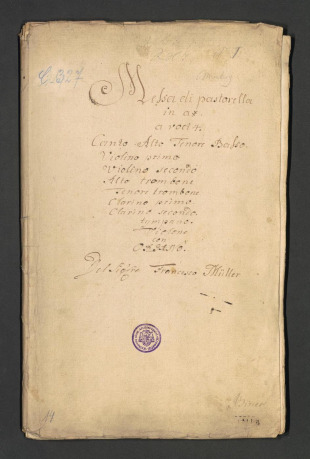 1.
C.327
Messa di pastorella
in a#
a voci 4.
Canto Alto Tenore Basso.
Violino primo
Violino secondo
Alto trombone
Tenore trombone
Clarino primo
Clarino secondo.
tympano.
con
Organo.
Del Sigre Francesco Müller